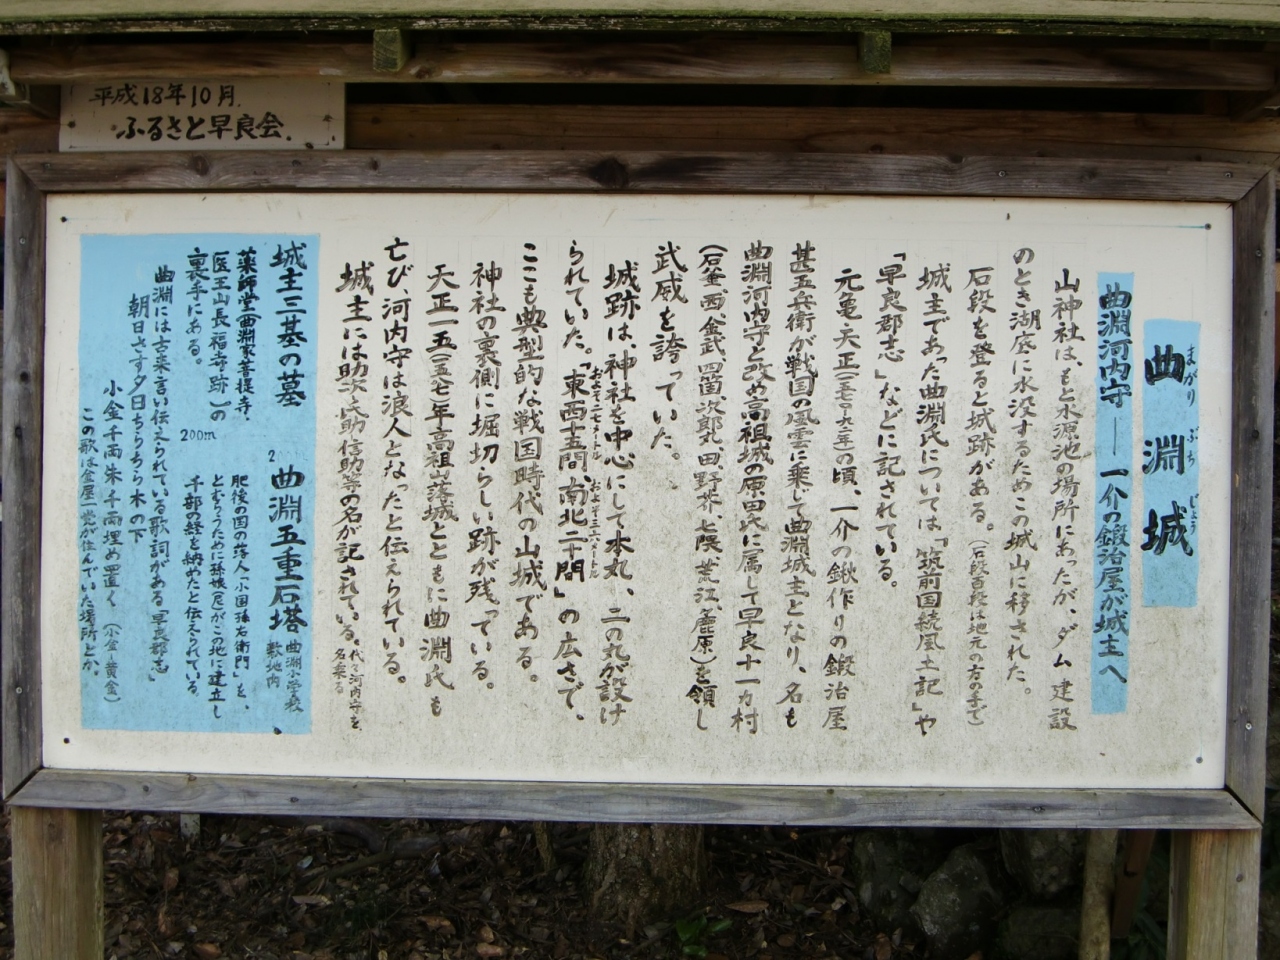 平成18年10月
ふるさと早良会
曲淵城
まがりぶちじょう
曲淵河内守―一介の鍛治屋が城主へ
山神社は、もと水源池の場所にあったが、ダム建設
のとき湖底に水没するためこの城山に移された。
石段を登ると城跡がある。(石段百段は地元の方の手で)
城主であった曲淵氏については「筑前国続風土記」や
「早良郡志」などに記されている。
元亀天正(一五七〇〜九一年)の頃、一介の鍬作りの鍛治屋
甚五兵衛が戦国の風雲に乗じて曲淵城主となり、名も
曲淵河内守と改め高祖城の原田氏に属して早良十一カ村
(石釜、西、金武、四箇、次郎丸、田、野芥、七隈、荒江、鹿原)を領し
武威を誇っていた。
城跡は、神社を中心にして本丸、二の丸が設け
られていた。「東西十五間、南北二十間」の広さで、
およそ二七メートル およそ三六メートル
ここも典型的な戦国時代の山城である。
神社の裏側に堀切らしい跡が残っている。
天正一五(一五八七)年高祖山落城とともに曲淵氏も
亡び、河内守は浪人となったと伝えられている。
城主には助次、氏助、信助等の名が記されている。代々河内守を
名乗る
城主三基の墓
薬師堂(曲淵家菩提寺・
医王山長福寺跡)の
裏手にある。
200m
曲淵五重石塔 曲淵小学校
敷地内
肥後の国の落人「小国孫右衛門」を、
とむらうために孫娘(尼)がこの地に建立し
千部の経を納めたと伝えられている。
曲淵には古来言い伝えられている歌詞がある「早良郡志」
朝日さす夕日ちらちら木の下
小金千両朱千両埋め置く (小金=黄金)
この歌は金屋一党が住んでいた場所とか。